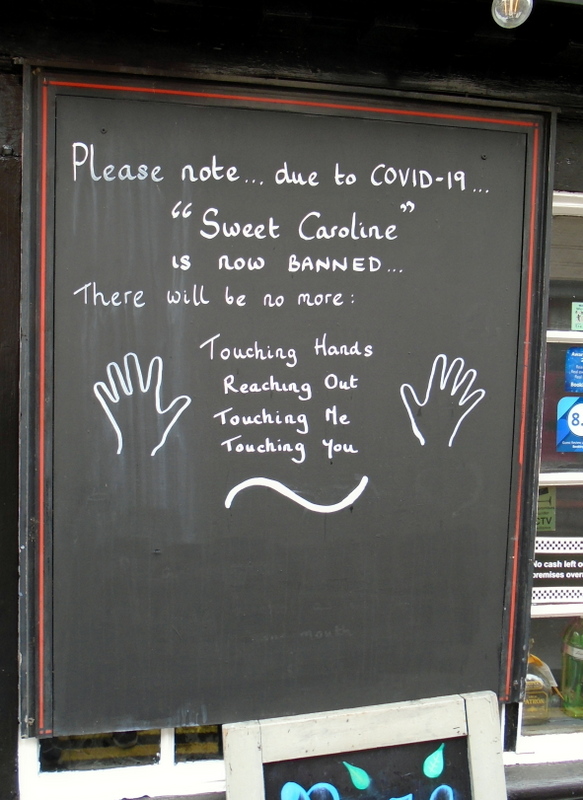 Please note... due to COVID-19...
"Sweet Caroline"
is now BANNED...
There will be no more:
Touching Hands
Reaching Out
Touching Me
Touching You
8.
CTV
No cash left o
premises over